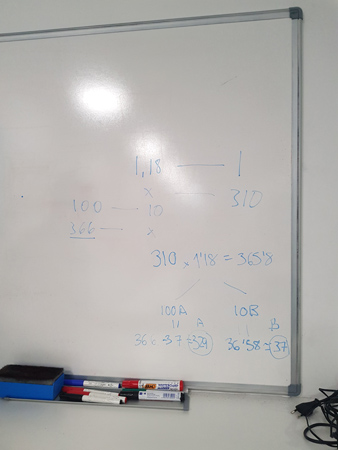 1,18 — 1
x — 310
100 — 10
366 — x
310 x 1'18 = 365'8
100A 10B
11 A B
36 x -37 = 329 36'58 = 37
BIC